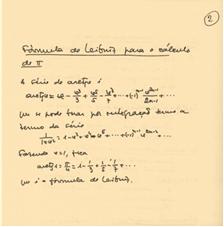 2
Fórmula de Leibniz para o cálculo
de π
A série de arctg x é
arctg x = x - x³/3 + x⁵/5 - x⁷/7 + ... + (-1)ⁿ⁻¹ x²ⁿ⁻¹/2n-1 + ...
se pode por integração termo a
termo da série
1/1+x² = 1 - x² + x⁴ - x⁶ + ...
Fazendo x = 1,
arctg 1 = π/4 = 1 - 1/3 + 1/5 - 1/7 + ...
é a fórmula de Leibniz.